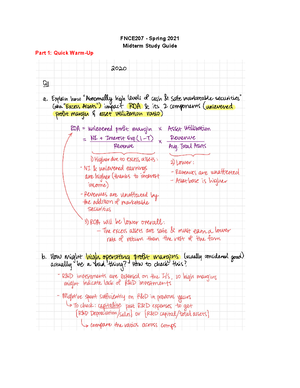 FNCE207 - Spring 2021
Midterm Study Guide
Part 1: Quick Warm-Up
2020
a. Explain how "Abnormally high levels of cash & safe marketable securities"
(aka "Excess Assets") impact ROA & its 2 components (unlevered
profit margin & asset utilization ratio)
ROA = unlevered profit margin × Asset Utilization
= NI + Interest Exp (1-T) × Revenue
Revenue Avg. Total Assets
1) Higher due to excess assets
- NI & unlevered earnings
are higher (thanks to interest
income)
- Revenues are unaffected by
the addition of marketable
securities
2) Lower:
- Revenues are unaffected
- Asset base is higher
3) ROA will be lower overall:
- The excess assets are safe & make earn a lower
rate of return than the rest of the firm
b. How might high operating profit margins (usually considered good)
actually be a "bad" thing? How to check this?
- R&D investments are expensed on the I/S, so high margins
might indicate lack of R&D investments
- Might've spent sufficiently on R&D in previous years
↳ To check: capitalize past R&D expenses to get
[R&D Depreciation/Sales] or [R&D capital/total assets]
↳ compare the ratios across comps